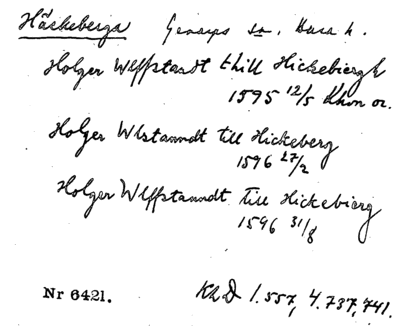 Häckeberga Genarps sn, Bara h.
Holger Wlffstandt thill Hickebiergh
1595 12/5 Khvn or.
Holger Wlstanndt till Hickeberg
1596 27/2
Holger Wlffstanndt Till Hickebierg
1596 31/8
Nr 6421. KhD 1.557, 4.737,741.